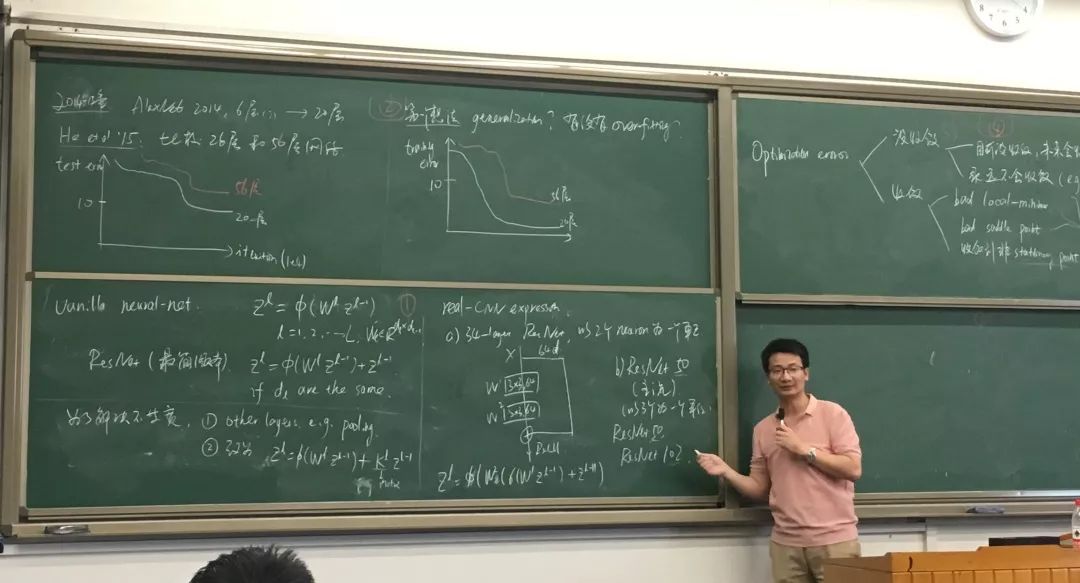 AlexNet 2014, 6层 → 20层
He et al '15: 比较 26层 和 56层网络
test error
10
56层
20-层
iteration (1e4)
②
另一个想法 generalization? 有没有 overfitting?
training error
10
56层
20层
Optimization error
没收敛
收敛
④
目前没收敛, 未来会
永远不会收敛 (e.g.
bad local-minima
bad saddle point
收敛到非 stationary point
Vanilla neural-net.
z^l = φ(W^l z^{l-1})
①
l = 1, 2, ... L, W^l ∈ R^{d_l×d_{l-1}}
ResNet (最简版本)
z^l = φ(W^l z^{l-1}) + z^{l-1}
if d_l are the same.
为了解决不一致,
① other layers, e.g. pooling.
②
z^l = φ(W^l z^{l-1}) + K^l z^{l-1}
real-CNN expression.
a) 34-layer ResNet, 以2个 neuron 为一个单元
X
64 d
W^1
3x3, 64
W^2
3x3, 64
ReLU
b) ResNet 50
(主流)
以3个为一个单位
ResNet 50
ResNet 102